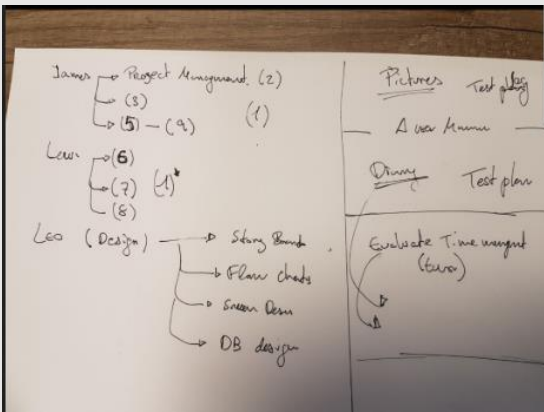 James Project Management. (2)
(3)
(5) - (9)
(1)
(6)
(7) (1)*
(8)
Leo (Design) Story Board
Flow charts
Screen Desn
DB design
Pictures Test plan log
A user Mannu
Diary Test plan
Evaluate Time mangent
(Error)